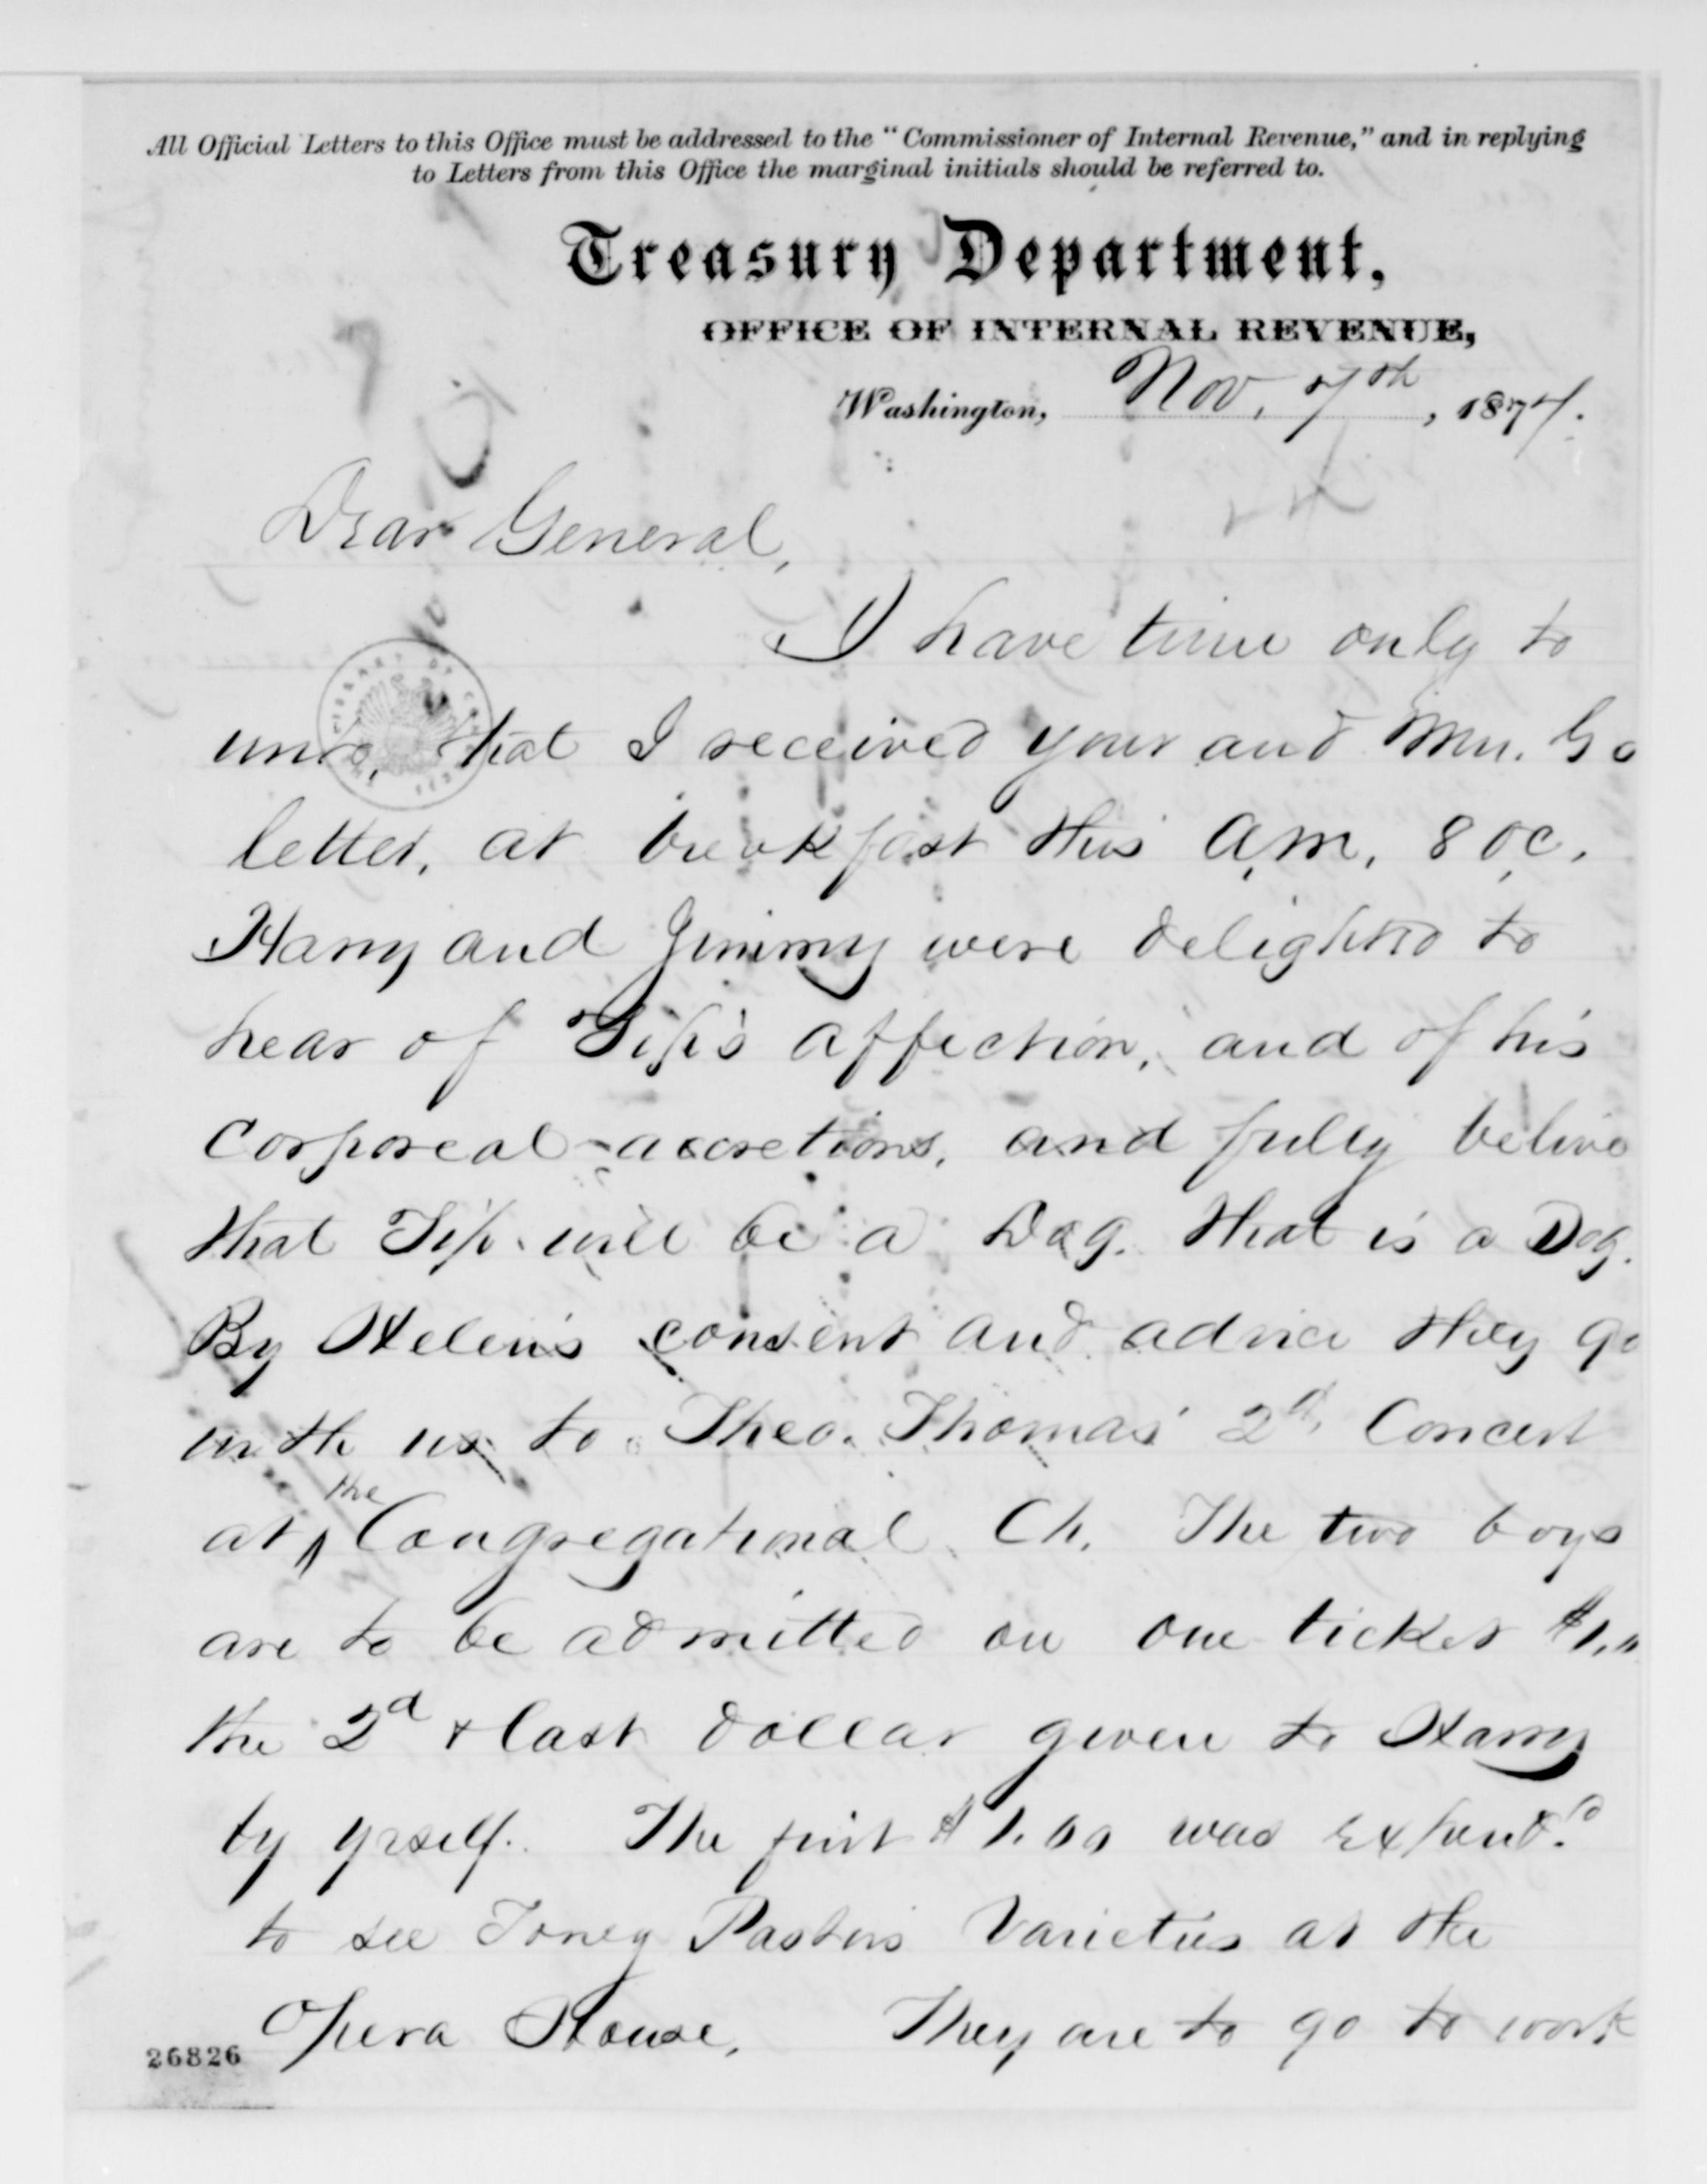 All Official Letters to this Office must be addressed to the "Commissioner of Internal Revenue," and in replying
to Letters from this Office the marginal initials should be referred to.
Treasury Department,
OFFICE OF INTERNAL REVENUE,
Washington, Nov. 7th, 1874.
Dear General,
I have time only to
that I received your and Mrs. G's
letter, at breakfast this A.M. 8 O,C,
Harry and Jimmy were delighted to
hear of Tip's affection, and of his
Corporeal accretions, and fully belive
that Tip will be a Dog. that is a Dog.
By Helen's consent and advice they go
with us to Theo. Thomas' 2d Concert
at the Congregational Ch. The two boys
are to be admitted on one ticket $1.
the 2d & last dollar given to Harry
by yrself. The first $1.00 was expend.d
to see Toney Pastors Varieties at the
Opera House. They are to go to work
26826
LIBRARY OF CONGRESS